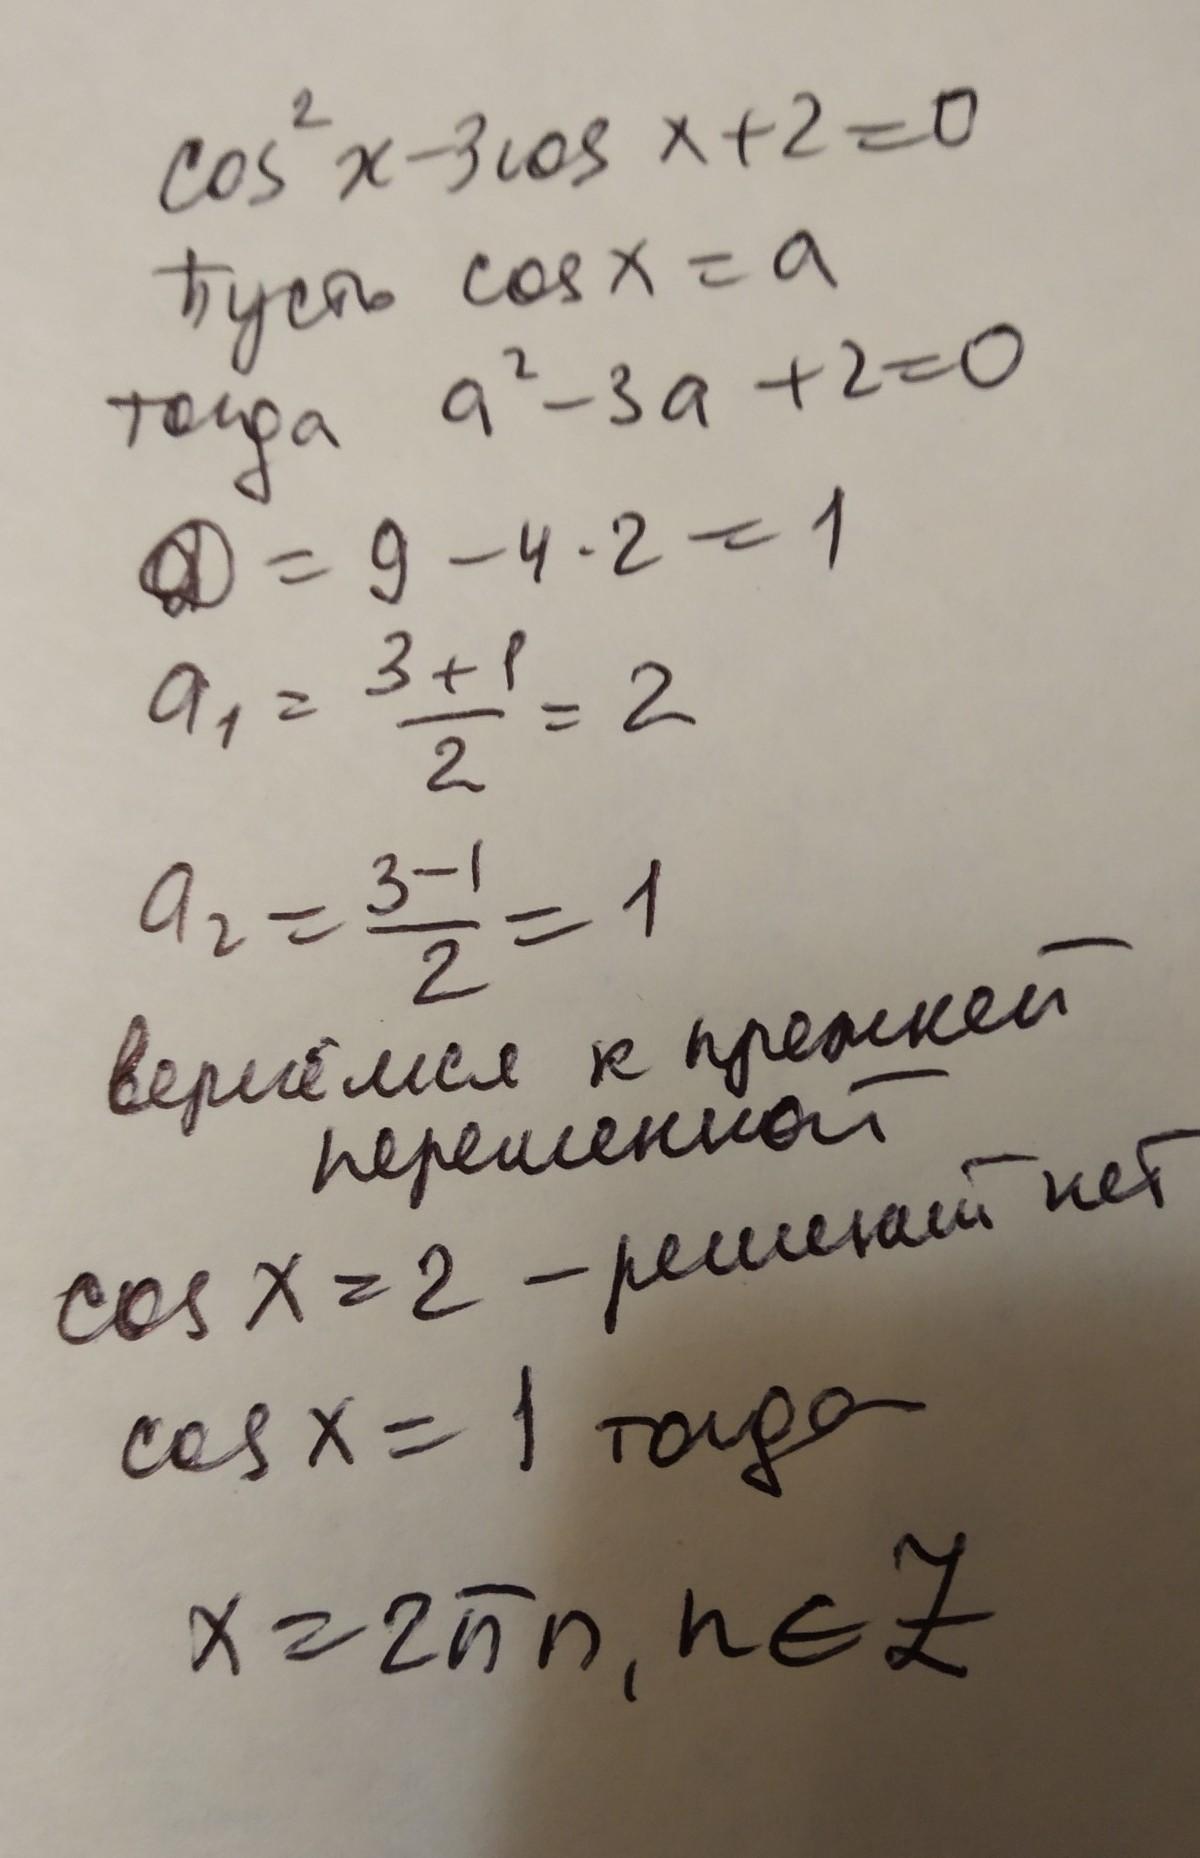 cos² x - 3cos x + 2 = 0
Пусть cos x = a
тогда a² - 3a + 2 = 0
D = 9 - 4 · 2 = 1
a₁ = (3 + 1)/2 = 2
a₂ = (3 - 1)/2 = 1
вернёмся к прежней
переменной
cos x = 2 - решений нет
cos x = 1 тогда
x = 2πn, n ∈ Z